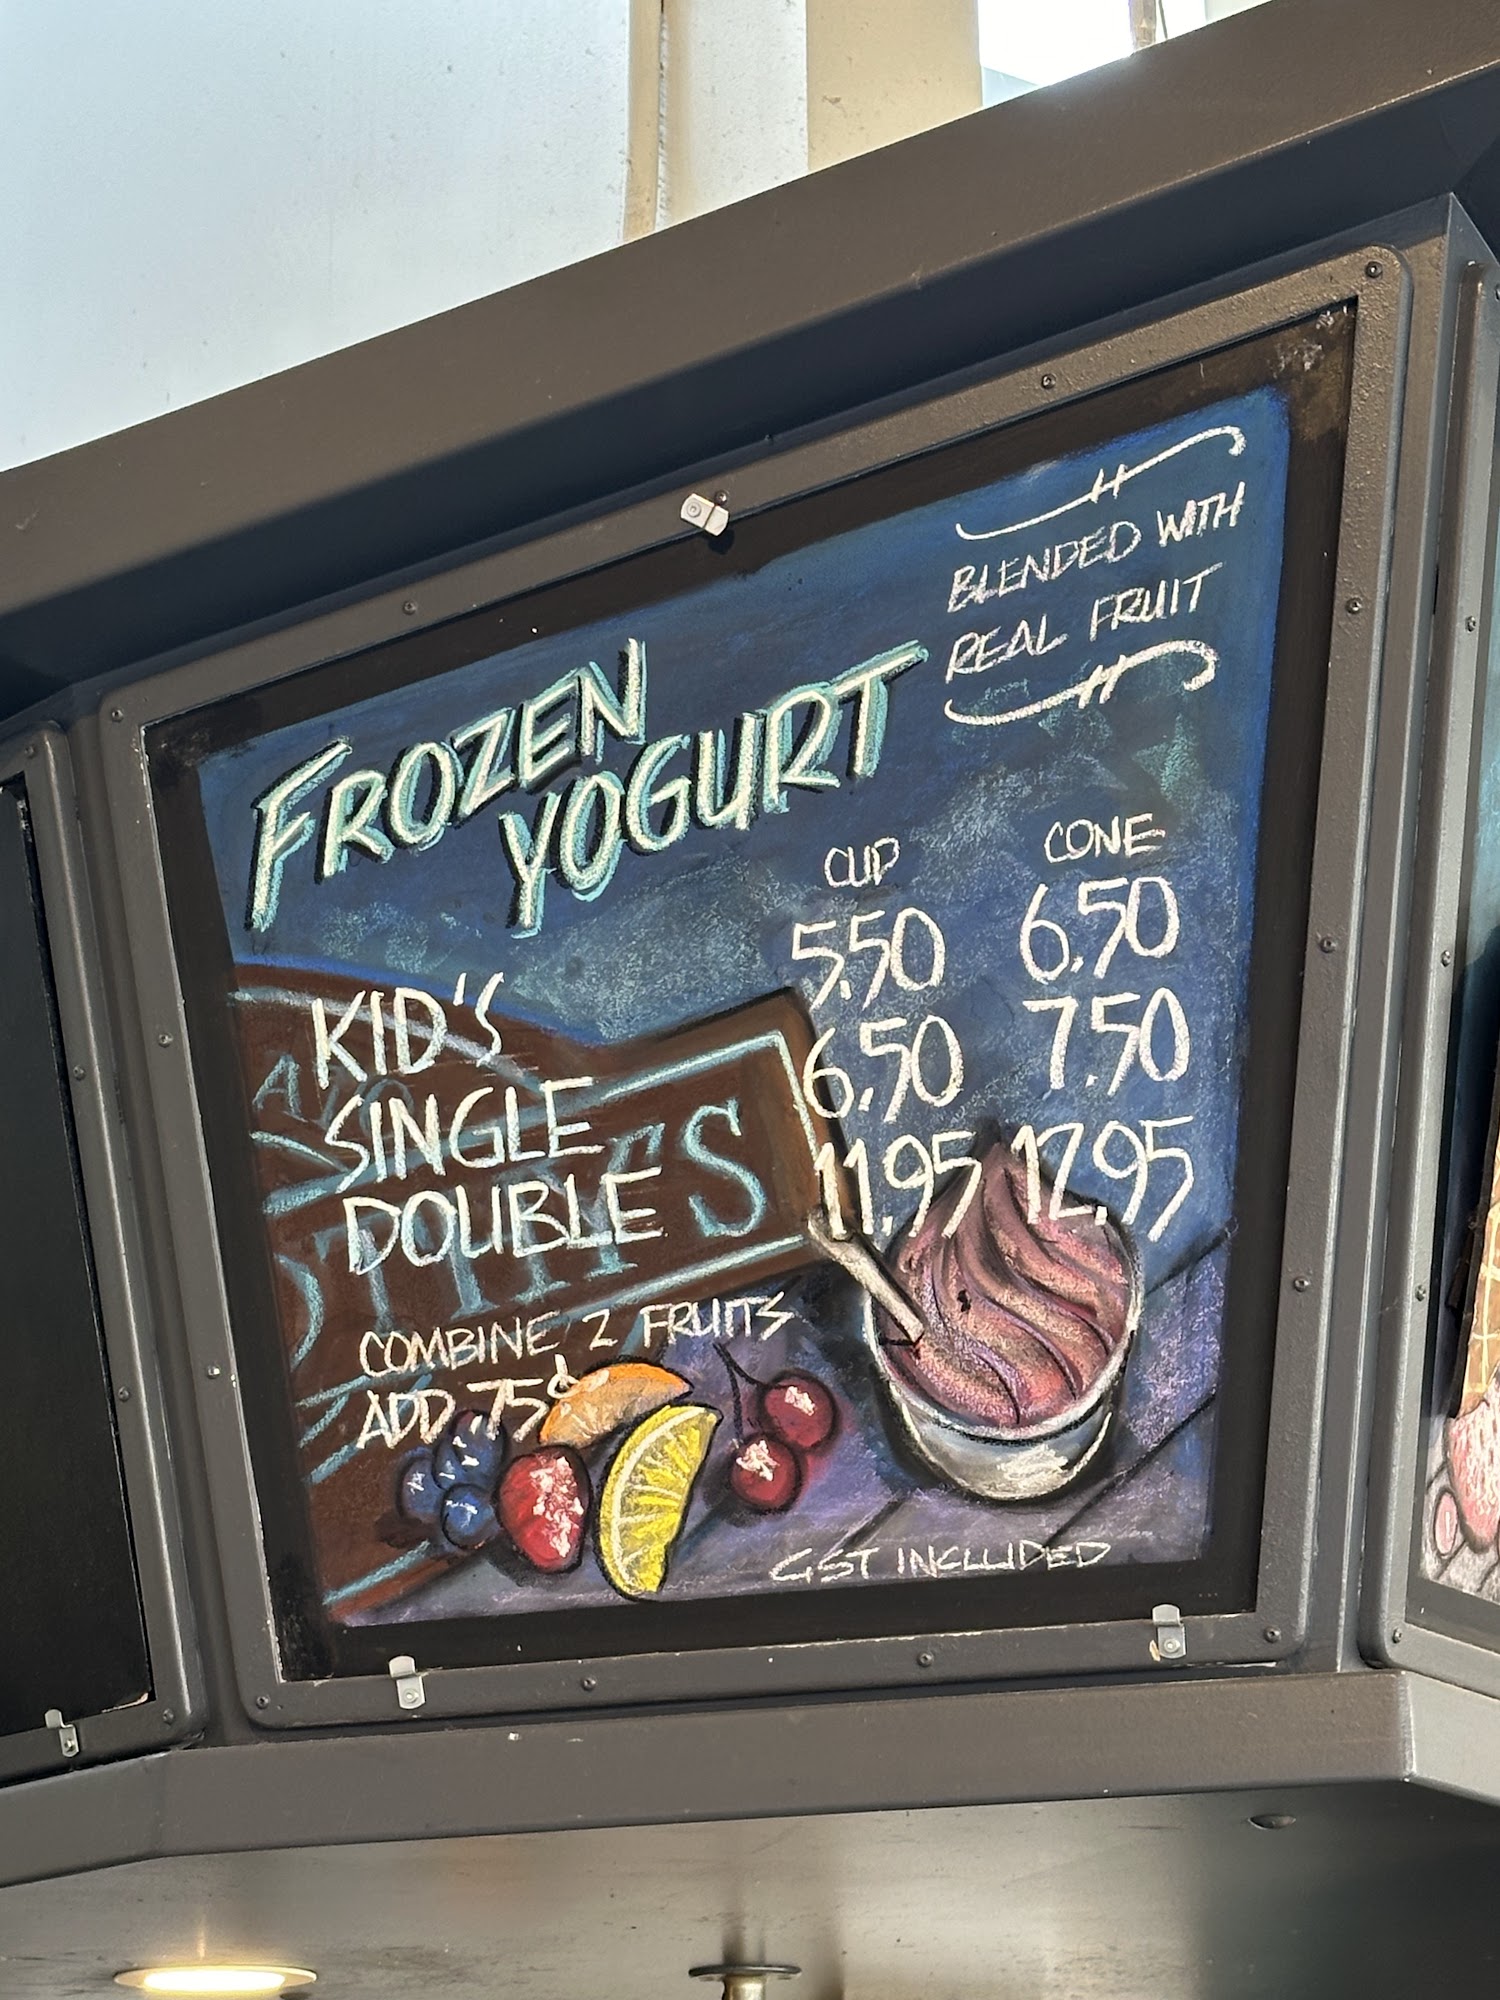 BLENDED WITH
REAL FRUIT
FROZEN
YOGURT
CUP CONE
KID'S 5.50 6.50
SINGLE 6.50 7.50
DOUBLE 11.95 12.95
COMBINE 2 FRUITS
ADD .75¢
GST INCLUDED